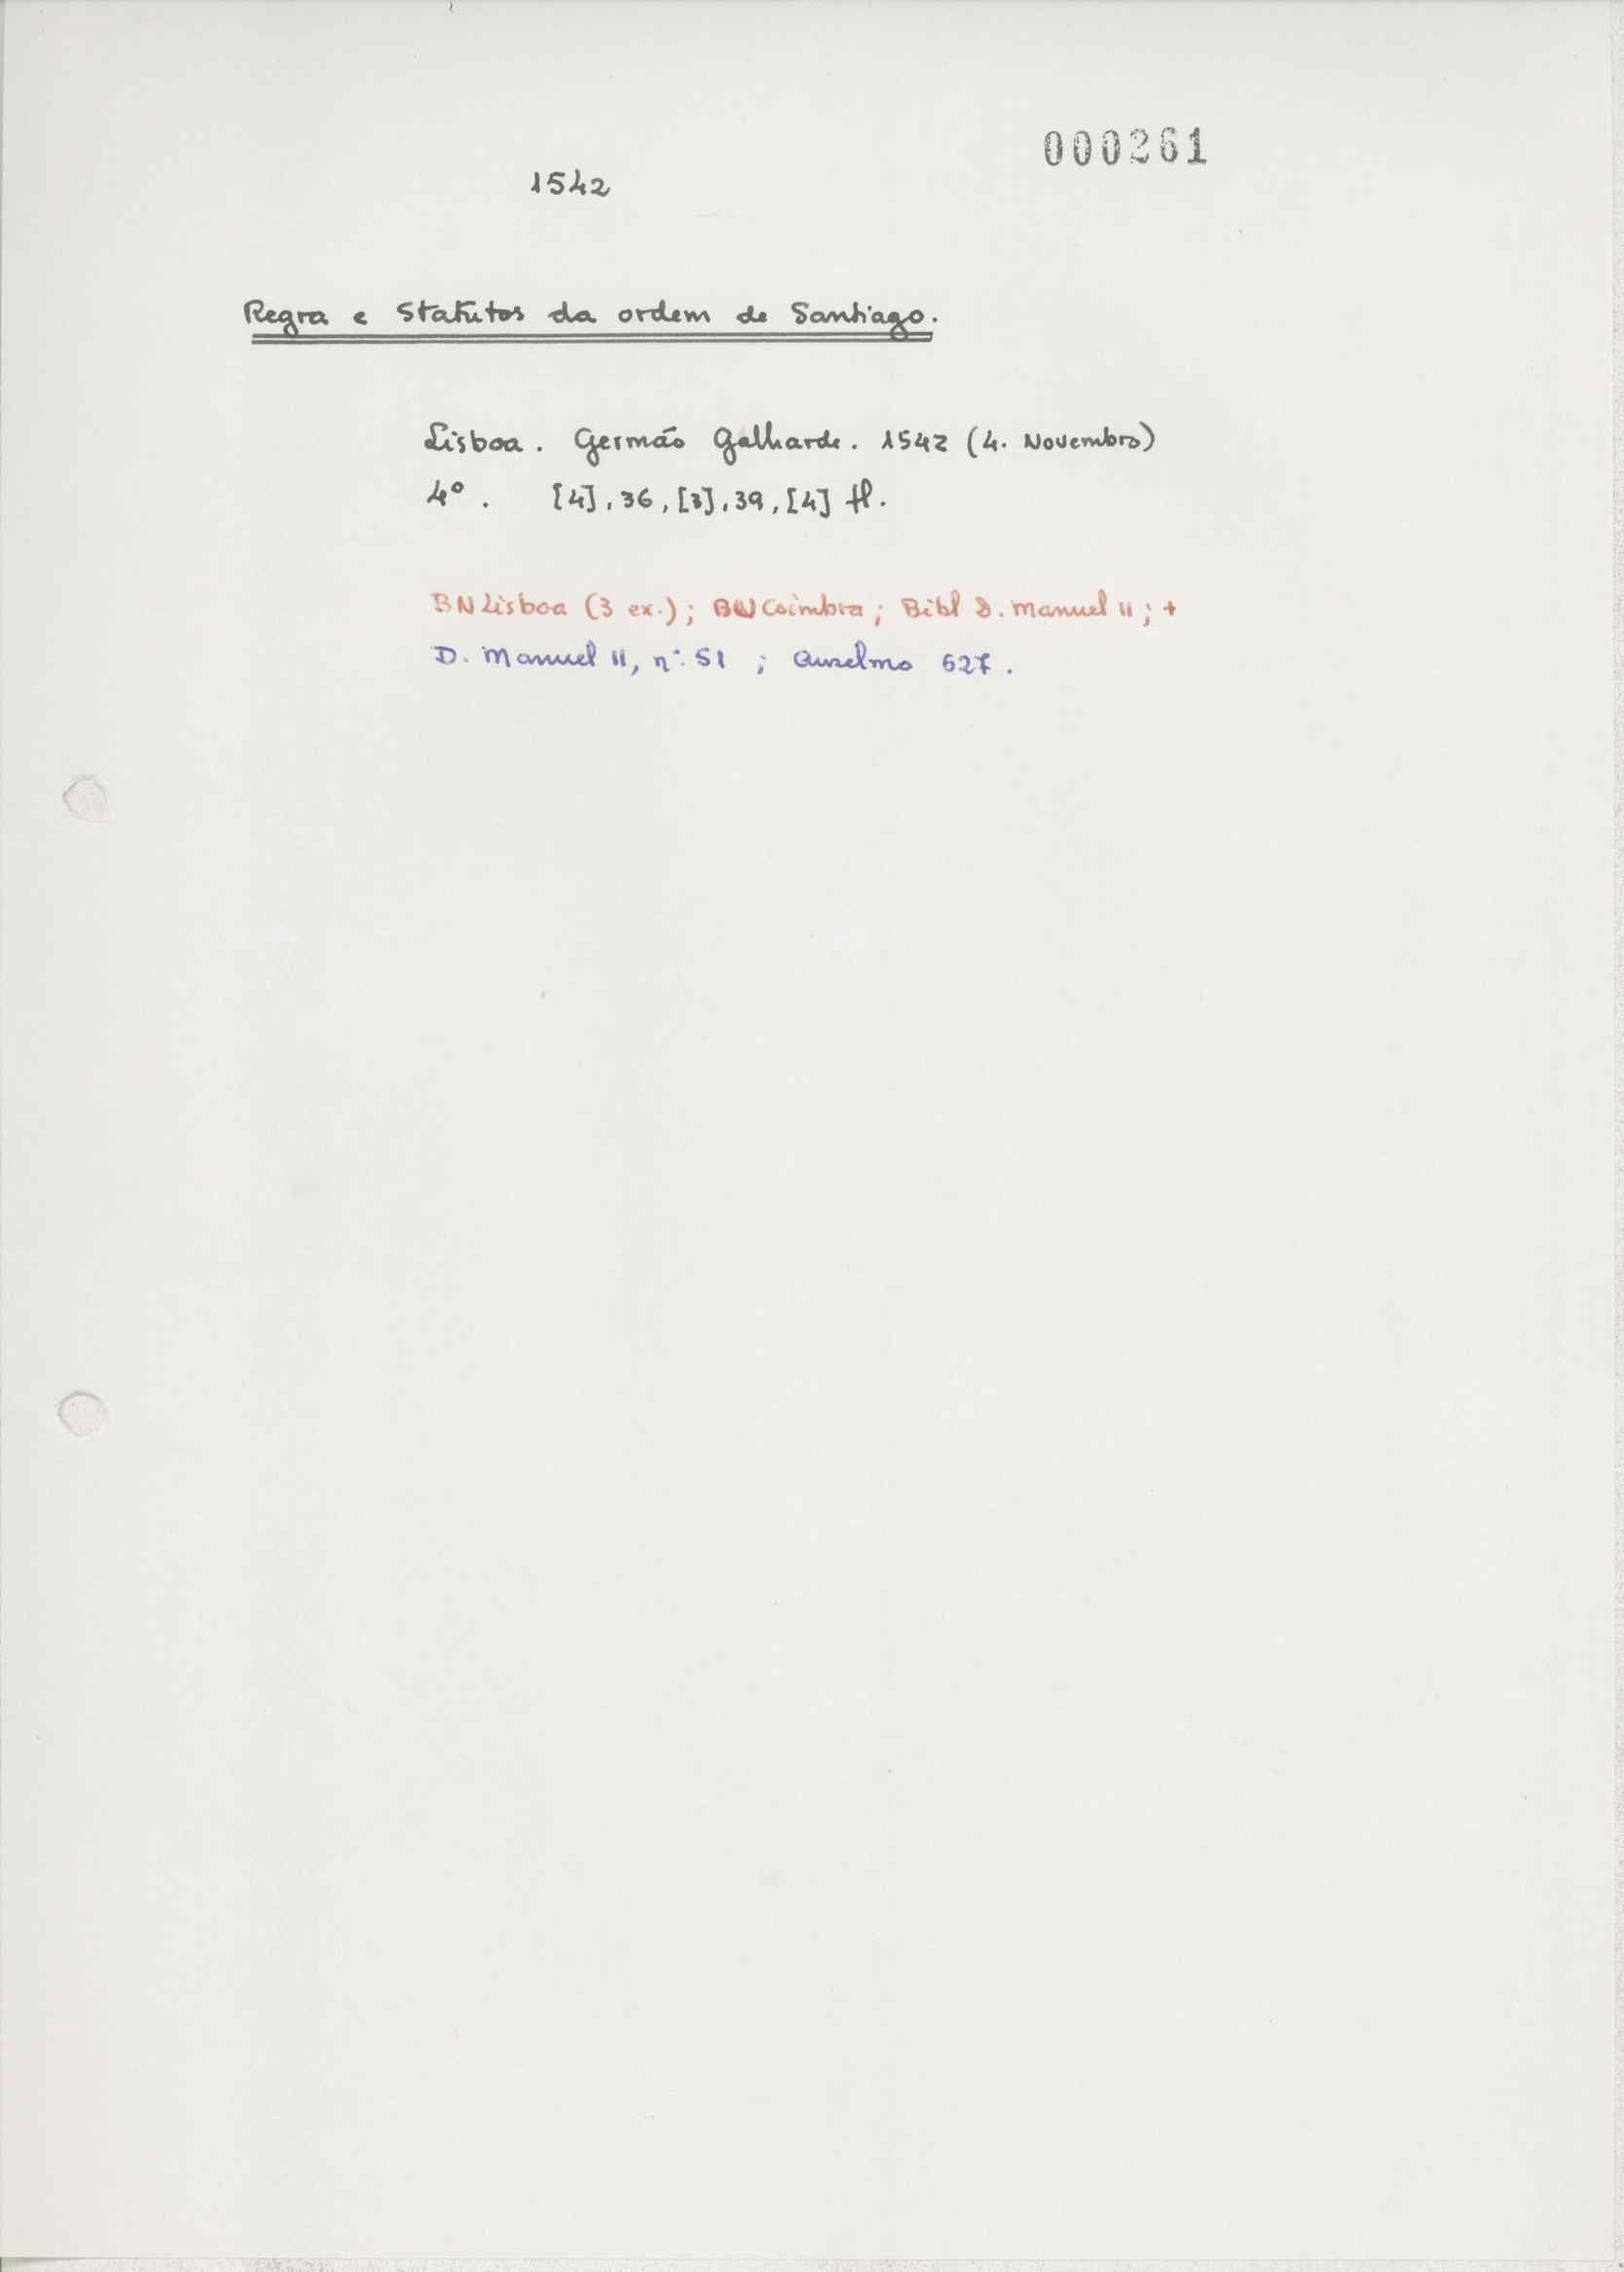 000261
1542
Regra e Statutos da ordem de Santiago.
Lisboa. Germão Galharde. 1542 (4. Novembro)
4º. [4], 36, [3], 39, [4] fl.
BN Lisboa (3 ex.); BU Coimbra; Bibl D. Manuel II; +
D. Manuel II, nº. 51 ; Anselmo 627.